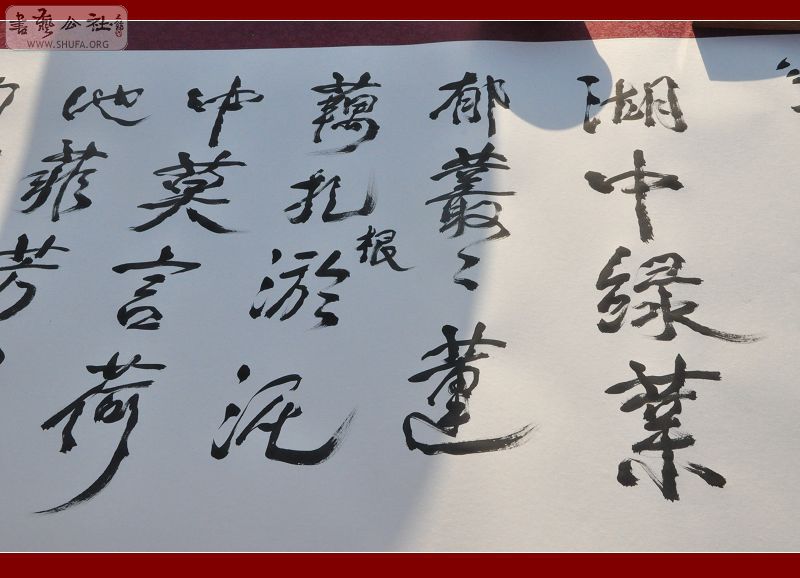 書藝公社
WWW.SHUFA.ORG
湖中緑葉
郁叢〻蓮
藕扎根淤泥
中莫言荷
池菲芳